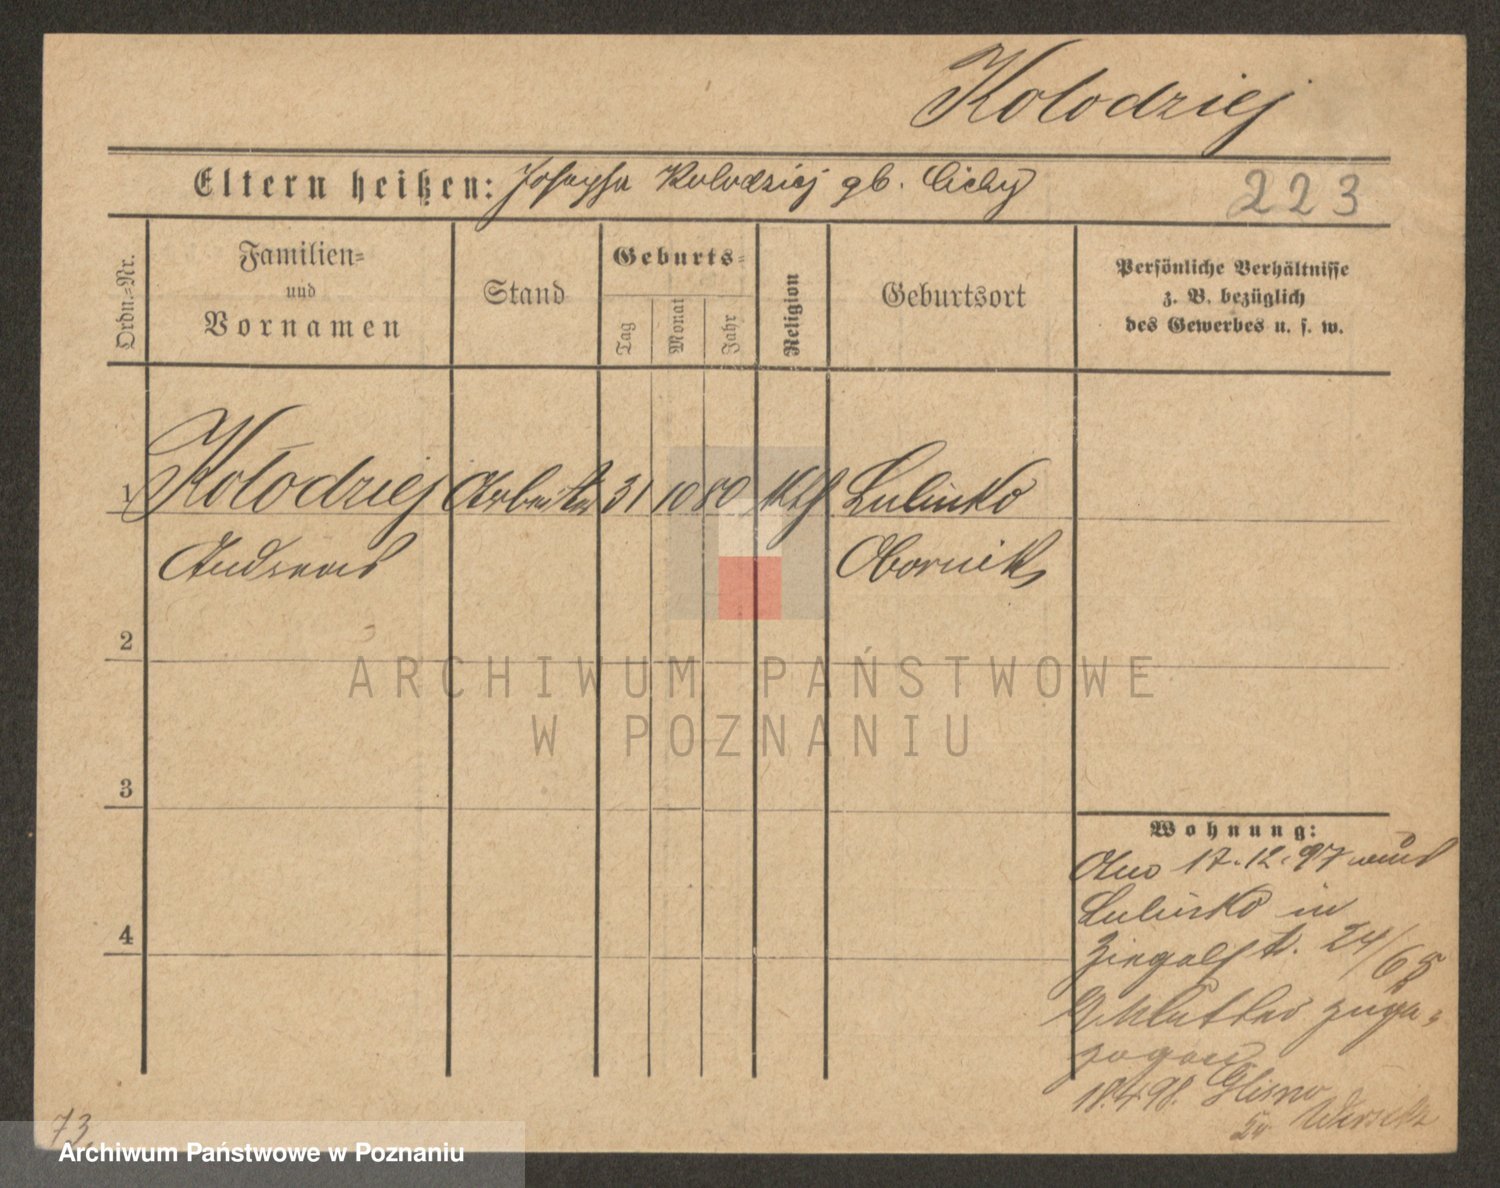 Kolodziej
Eltern heißen: Josepha Kolodziej gb. Cichy
223
Ordn.=Nr.
Familien=
und
Vornamen
Stand
Geburts=
Tag
Monat
Jahr
Religion
Geburtsort
Persönliche Verhältnisse
z. B. bezüglich
des Gewerbes u. s. w.
1 Kołodziej Arbeiter 31 10 80 kth Lulinko
Andreas Obornik
2
3
4
ARCHIWUM PAŃSTWOWE
W POZNANIU
Wohnung:
17.12.97 aus
Lulinko in
Ziegelstr. 24/65
zuge=
zogen
18.4.98.
73
Archiwum Państwowe w Poznaniu